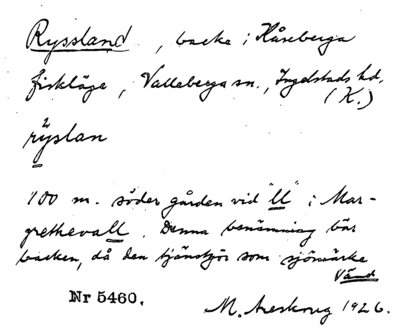 Ryssland, backe i Kåseberga
fiskläge, Valleberga sn., Ingelstads hd.
(K.)
rÿslan
100 m. söder gården vid "ll" i Mar-
grethevall. Denna benämning bär
backen, då den tjänstgör som sjömärke
Vänd
Nr 5460.
M. Areskoug 1926.